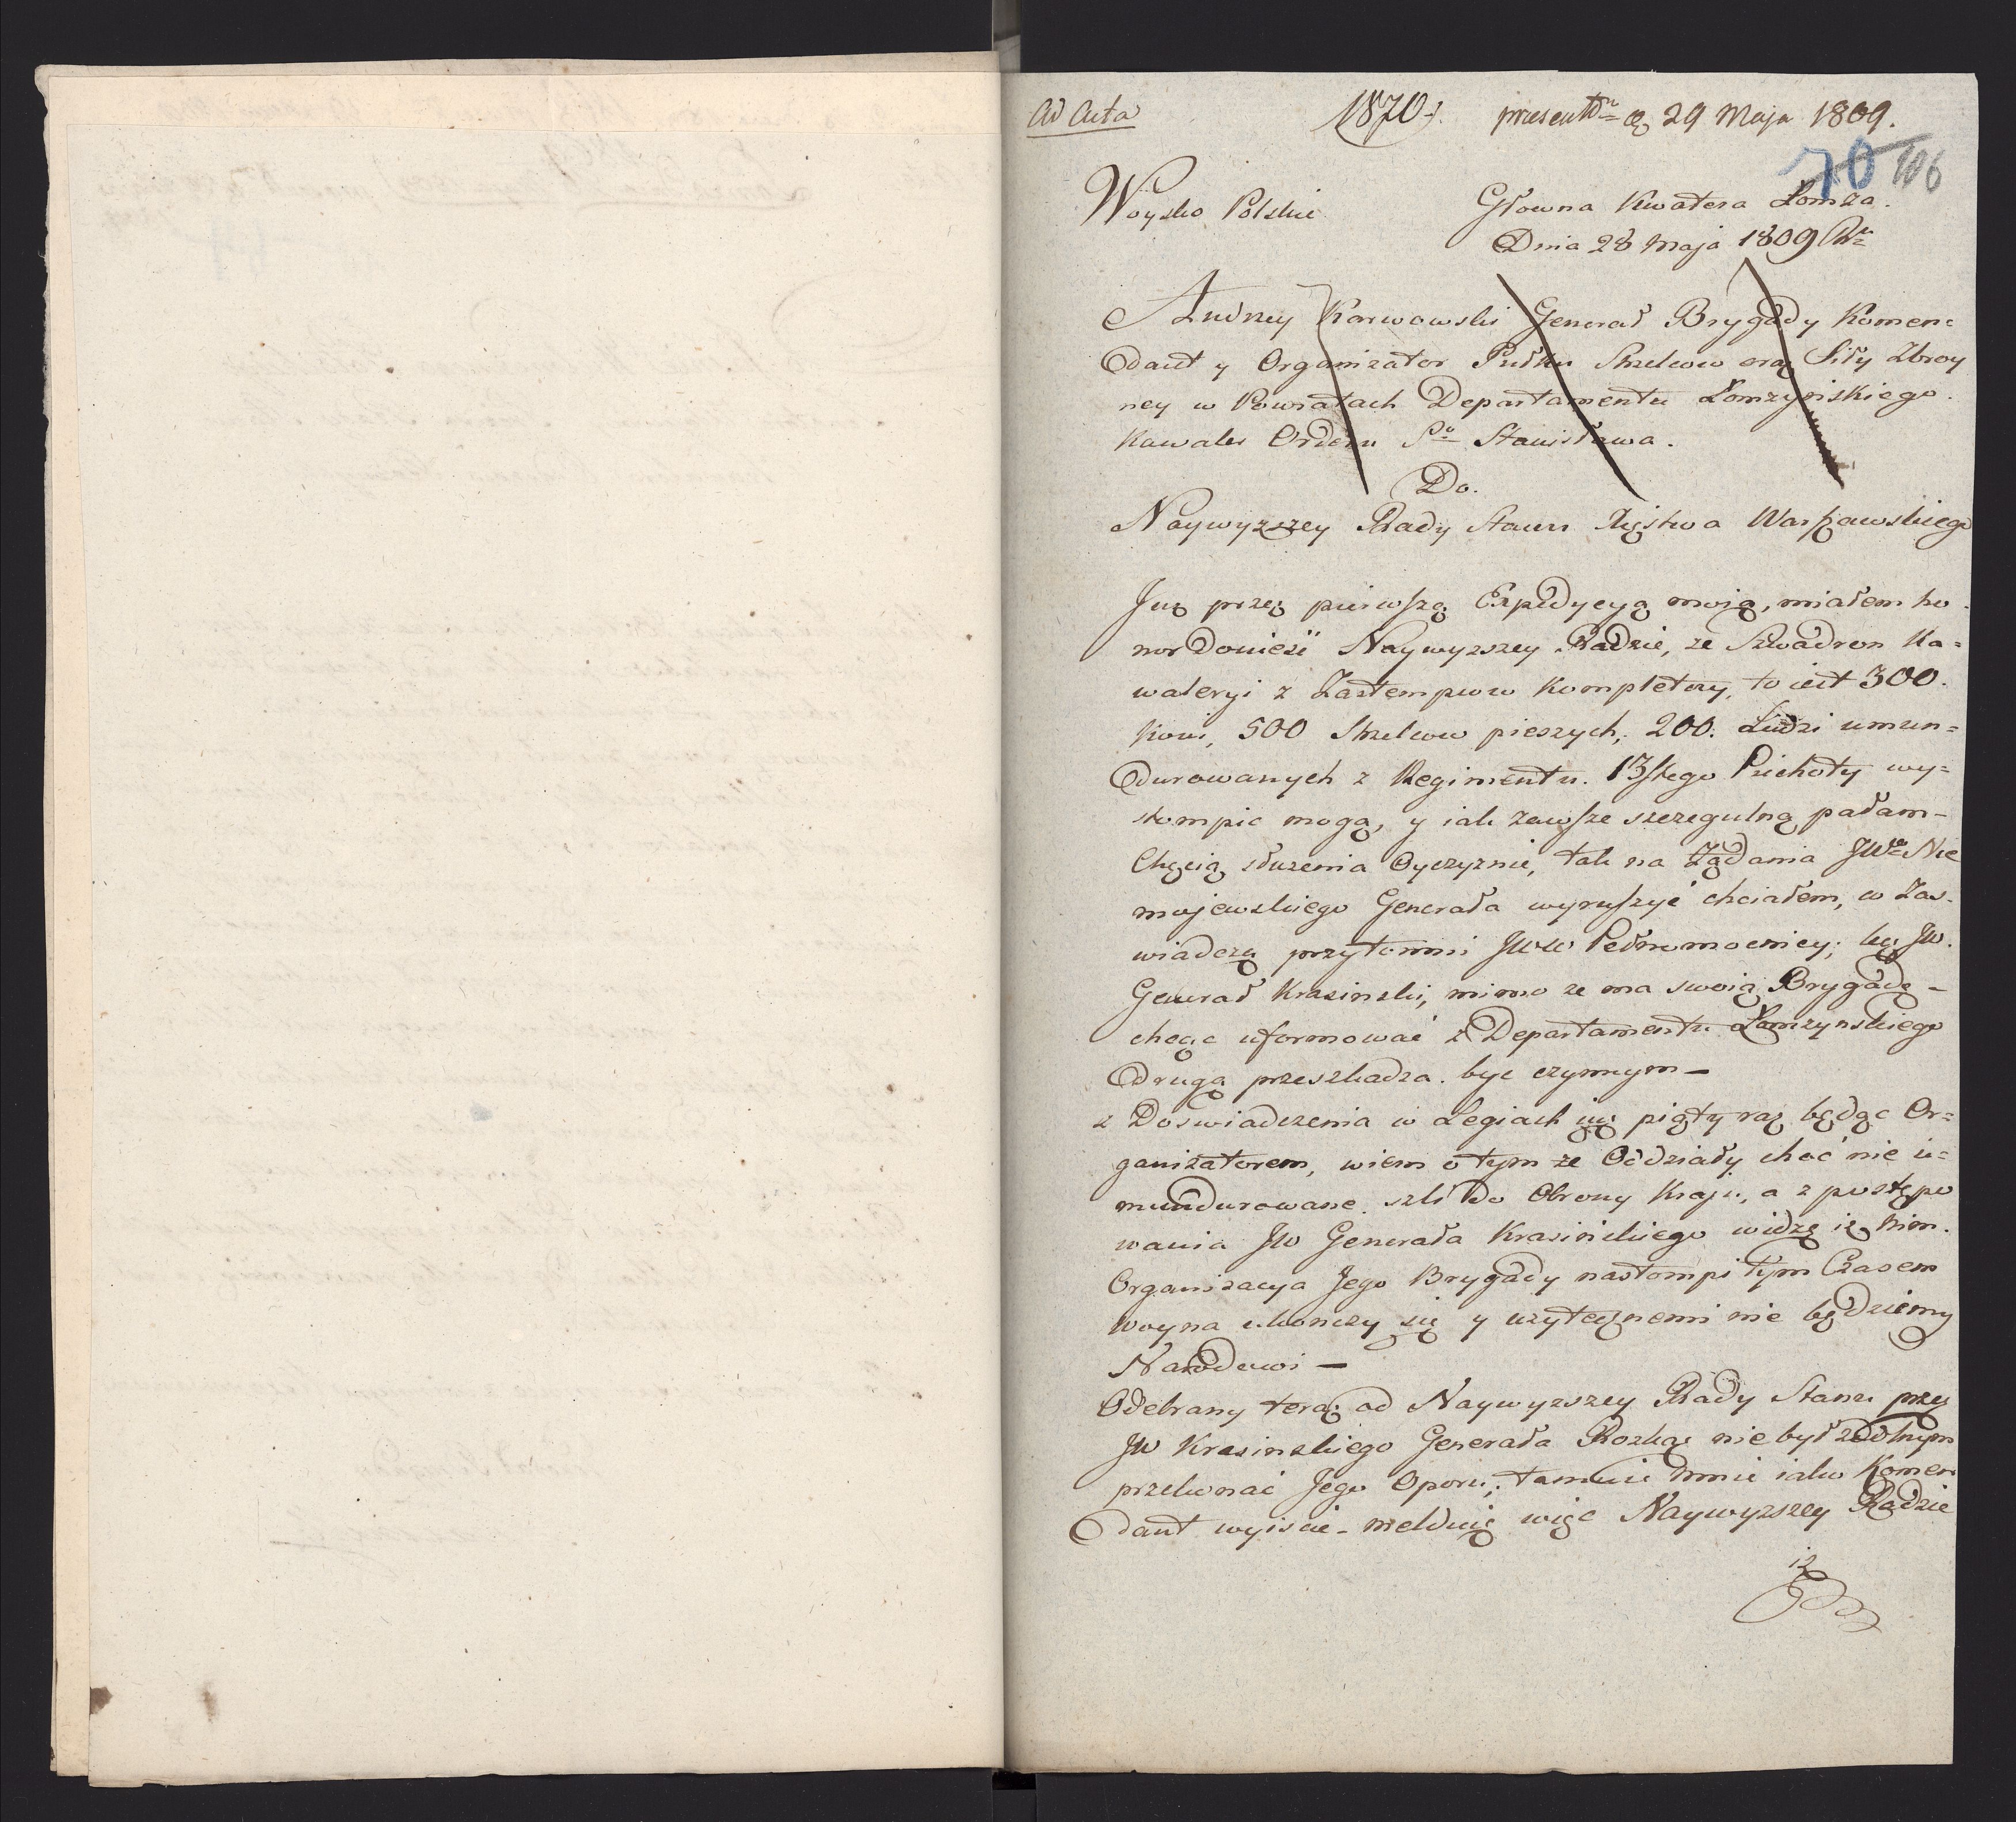 Ad Acta
1870. praesent. d. 29 Maja 1809.
70 106
Woysko Polskie
Głowna Kwatera Łomża.
Dnia 28 Maja 1809 Ru
Andrzey Karwowski Generał Brygady Komen=
dant y Organizator Pułku Strzelcow oraz Siły Zbroy
ney w Powiatach Departamentu Łomzyńskiego.
Kawaler Orderu So Stanisława.
Do.
Naywyzszey Rady Stanu Xięstwa Warszawskiego
Juz przez pierwszą Expedycyą moią, miałem ho
nor donieść Naywyzszey Radzie, ze Szwadron Ka=
waleryi z Zastempcow kompletny, to iest 300.
koni, 500 Strzelcow pieszych, 200. Ludzi umun=
durowanych z Regimentu. 13stego Piechoty wy=
stompic mogą, y iak zawsze szczegulną pałam-
Chęcią słuzenia Oyczyznie, tak na Ządania JWo Nie
mojewskiego Generała wyruszyć chciałem, co Zas-
wiadczą przytomni JWW Pełnomocnicy; lecz JW.
Generał Krasinski, mimo ze ma swoią Brygadę -
chcąc uformować z Departamentu Łomzynskiego
Drugą przeszkadza. byc czynnym -
z Doswiadczenia w Legiach iuz piąty raz będąc Or=
ganizatorem, wiem o tym ze Oddziały choć nie u=
mundurowane. szli do Obrony Kraju, a z postępo
wania JW Generała Krasińskiego widzę iz nim.
Organizacya Jego Brygady nastompi tym Czasem
Woyna ukonczy się y uzytecznemi nie będziemy
Narodowi -
Odebrany teraz od Naywyzszey Rady Stanu przez
JW Krasinskiego Generała Rozkaz nie był zdolnym
przekonać Jego Oporu; tamuie mnie iako Komen
dant wyiscie - melduię więc Naywyzszey Radzie
iz